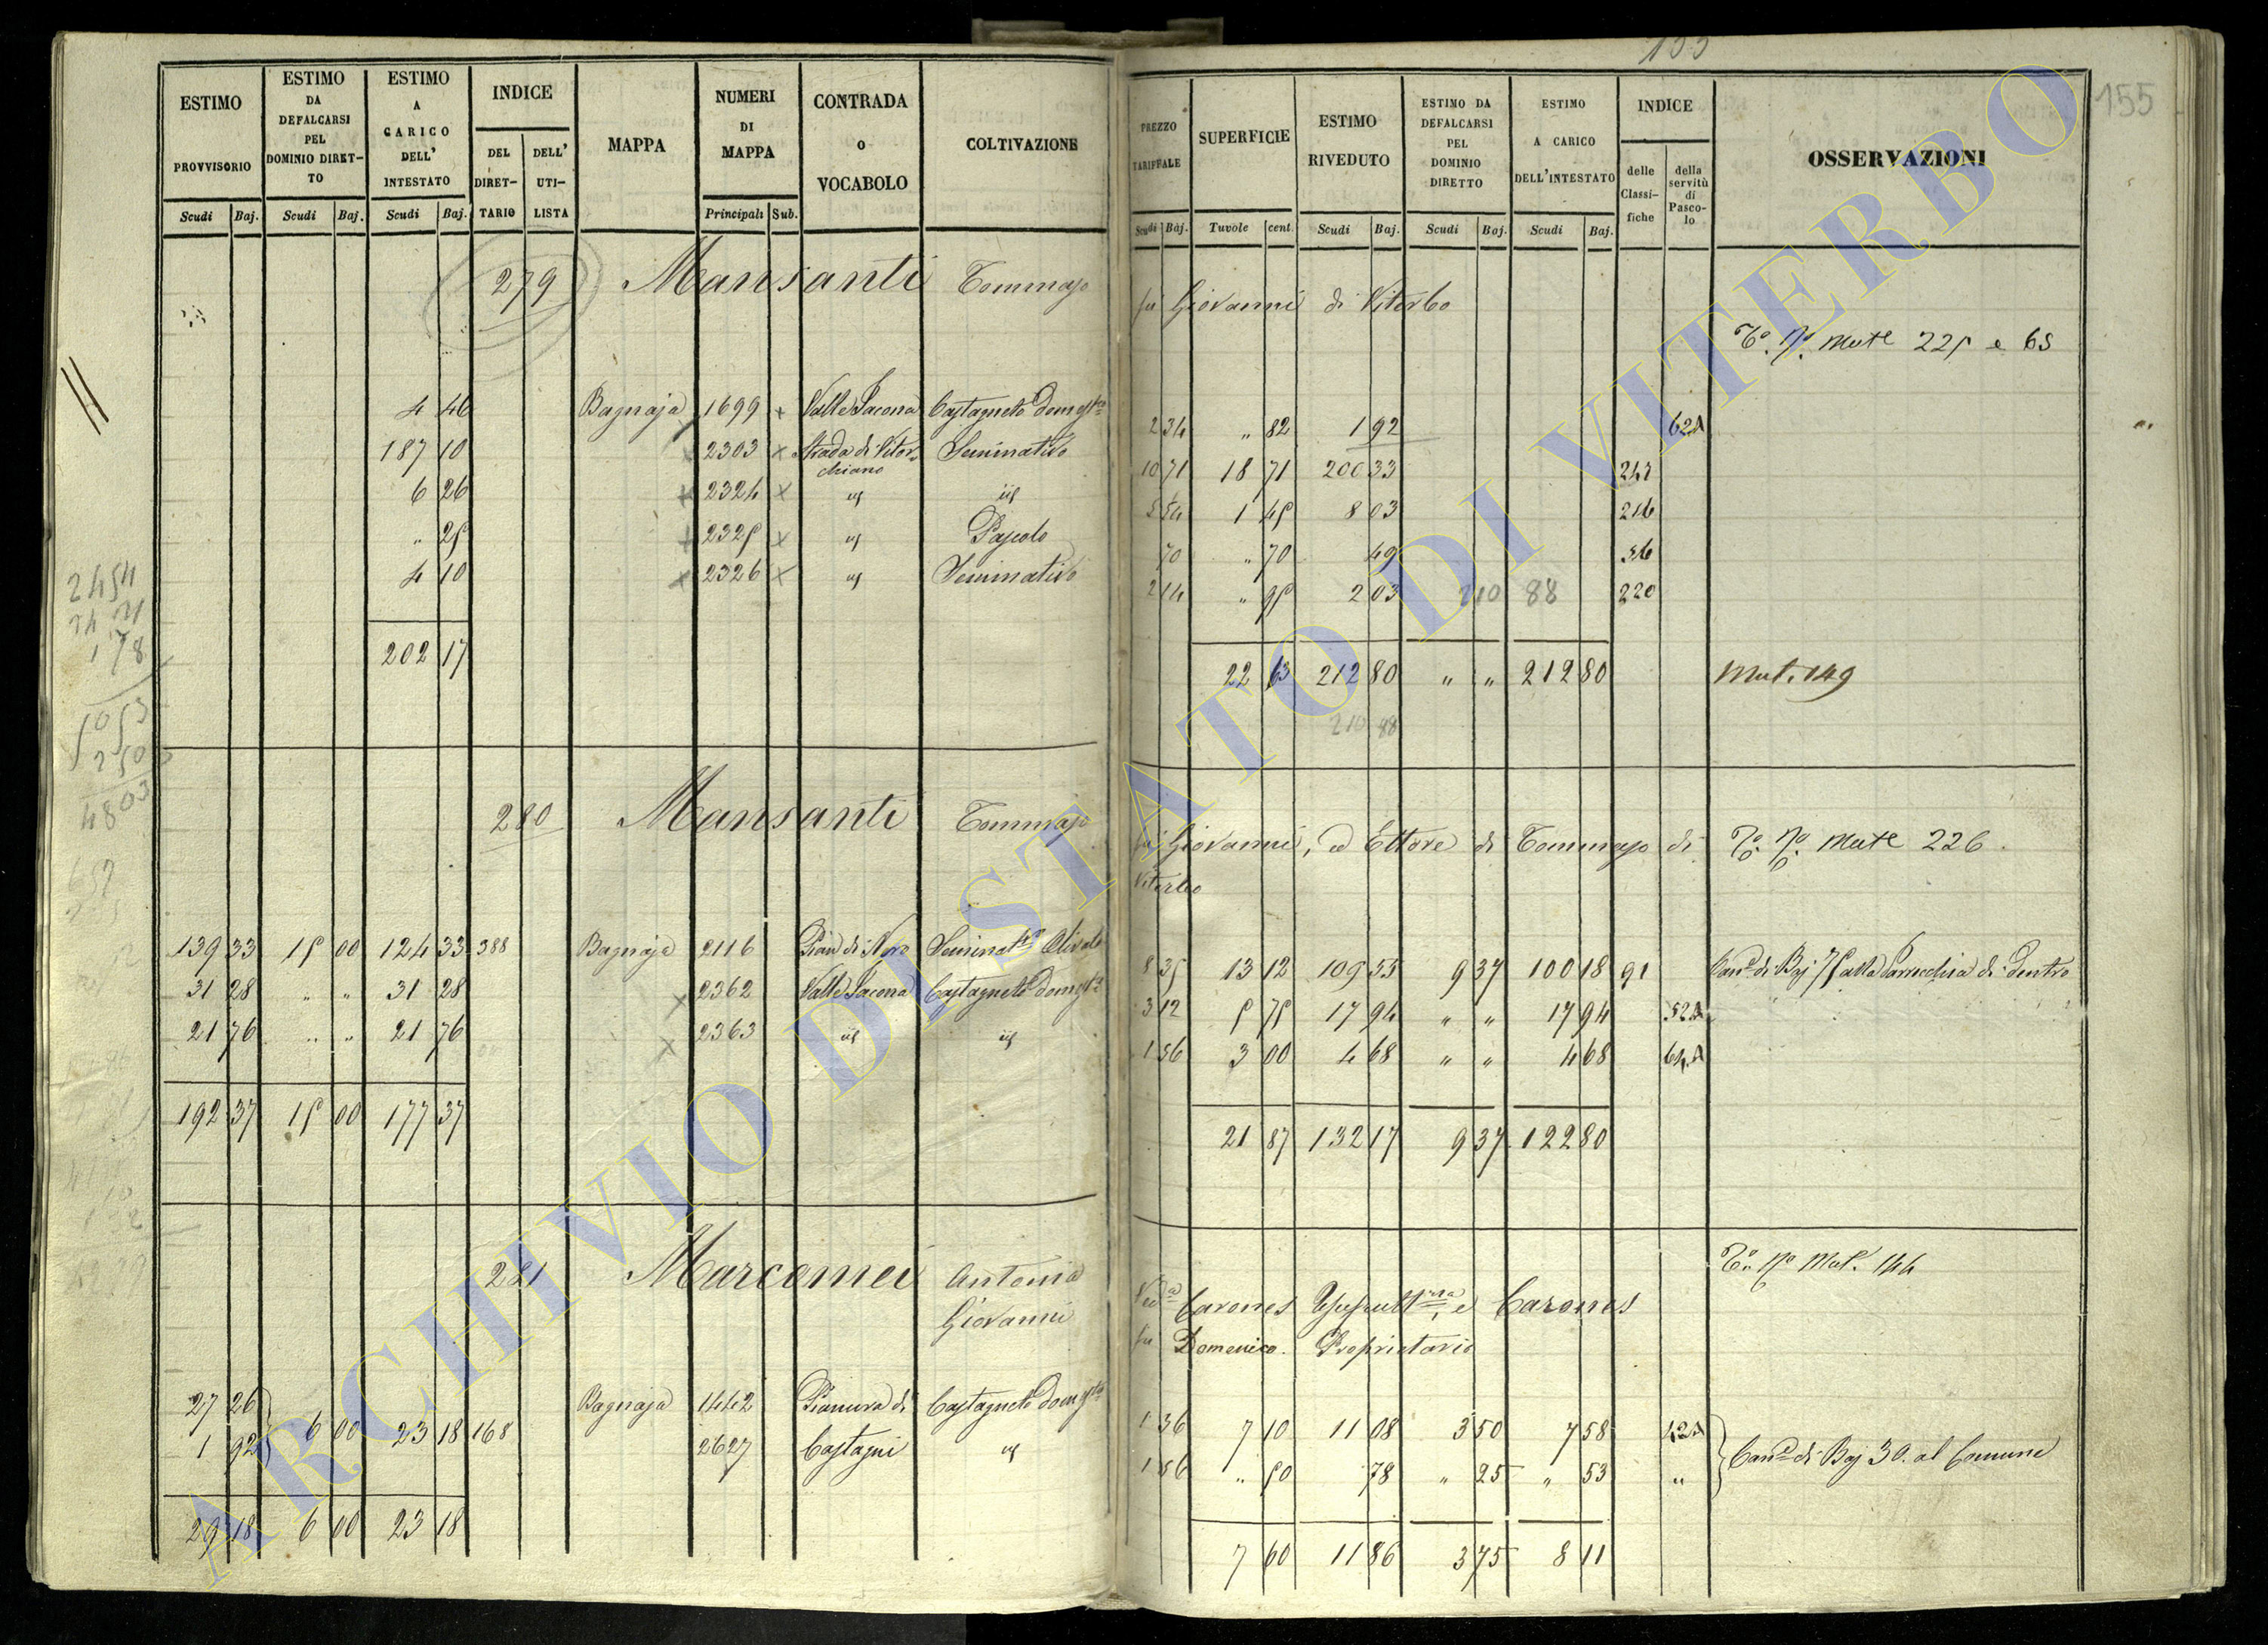 155
155
ESTIMO PROVVISORIO Scudi Baj.
ESTIMO DA DEFALCARSI PEL DOMINIO DIRETTO Scudi Baj.
ESTIMO A CARICO DELL' INTESTATO Scudi Baj.
INDICE DEL DIRETTARIO DELL' UTILISTA
MAPPA
NUMERI DI MAPPA Principali Sub.
CONTRADA o VOCABOLO
COLTIVAZIONE
PREZZO TARIFFALE Scudi Baj.
SUPERFICIE Tavole cent.
ESTIMO RIVEDUTO Scudi Baj.
ESTIMO DA DEFALCARSI PEL DOMINIO DIRETTO Scudi Baj.
ESTIMO A CARICO DELL'INTESTATO Scudi Baj.
INDICE delle Classifiche della servitù di Pascolo
OSSERVAZIONI
279 Mansanti Tommaso fu Giovanni di Viterbo
To. No. Mute 225 e 65
4 46 Bagnaja 1699 x Valle Jacona Castagneto Domest.co 2 34 „ 82 1 92 62A
187 10 2303 x Strada di Vitorchiano Seminativo 10 71 18 71 200 33 247
6 26 x 2324 x id id 5 54 1 45 8 03 216
„ 25 x 2325 x id Pascolo 70 „ 70 49 56
4 10 x 2326 x id Seminativo 2 14 „ 95 2 03 210 88 220
202 17 22 63 212 80 „ „ 212 80 Mut. 149
210 88
280 Mansanti Tommaso fu Giovanni, ed Ettore di Tommaso di Viterbo
To. No. Mute 226.
139 33 15 00 124 33 388 Bagnaja 2116 Pian di Nero Seminat.o Olivato 8 35 13 12 109 55 9 37 100 18 91 Can.e di Baj 75 alla Parrocchia di dentro
31 28 „ „ 31 28 x 2362 Valle Jacona Castagneto Domest.o 3 12 5 75 17 94 „ „ 17 94 52A
21 76 „ „ 21 76 x 2363 id id 1 56 3 00 4 68 „ „ 4 68 64A
192 37 15 00 177 37 21 87 132 17 9 37 122 80
281 Marcomei Antonia Ved.a Carones Usufrutt.ria, e Carones
Giovanni fu Domenico. Proprietario
To. No. Mut. 144
27 26 6 00 23 18 168 Bagnaja 1442 Pianura di Castagneto Domest.o 1 56 7 10 11 08 3 50 7 58 42A
1 92 2627 Castagni id 1 56 „ 50 78 „ 25 „ 53 „ Can.e di Baj 30. al Comune
29 18 6 00 23 18 7 60 11 86 3 75 8 11
2454
178
4803
ARCHIVIO DI STATO DI VITERBO